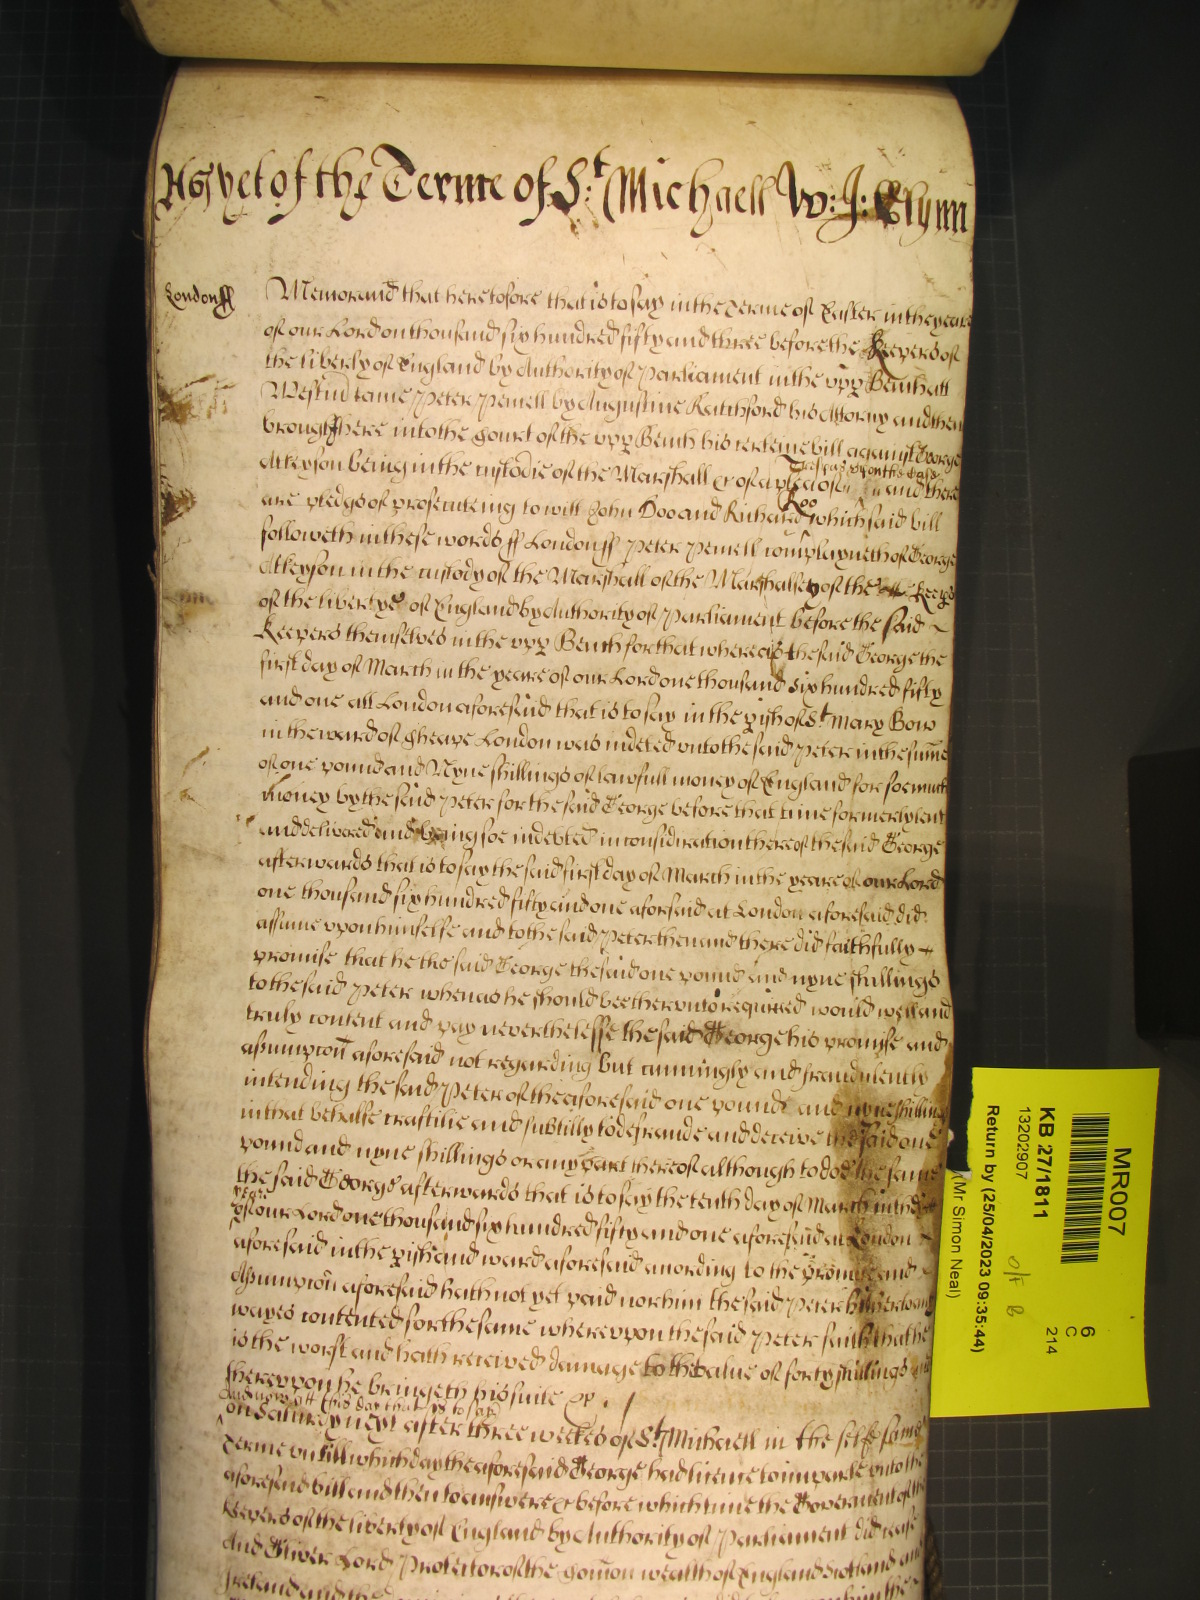 As yet of the Terme of St: Michaell W: J: Glynn
London ss
Memorand that heretofore that is to say in the Terme of Easter in the yeare
of our Lord on thousand six hundred fifty and three before the Keepers of
the liberty of England by Authority of Parliament in the upp Bench att
Westm came Peter Pernell by Augustine Ratchford his Attorny and then
brought here into the Court of the upp Bench his certeine bill against George
Atkeyson being in the custodie of the Marshall &c of a plea of
Trespas upon the case
and there
are pledgs of prosecuteing to witt John Doo and Richard
Roo
which said bill
followeth in these words ss London ss Peter Pernell complayneth of George
Atkeyson in the custody of the Marshall of the Marshalsey of the Keeps
of the libertye of England by Authority of Parliament before the said
Keepers themselves in the upp Bench for that whereas the said George the
first day of March in the yeare of our Lord one thousand six hundred fifty
and one att London aforesaid that is to say in the pish of St Mary Bow
in the ward of Cheape London was indebted unto the said Peter in the sume
of one pound and Nyne shillings of lawfull money of England for soe much
money by the said Peter for the said George before that time formerly lent
and delivered and being soe indebted in consideration thereof the said George
afterwards that is to say the said first day of March in the yeare of our Lord
one thousand six hundred fifty and one aforsaid at London aforesaid did
assume upon himselfe and to the said Peter then and there did faithfully
promise that he the said George the said one pound and nyne shillings
to the said Peter whenas he should bee thereunto required would well and
truly content and pay neverthelesse the said George his promise and
assumpton aforesaid not regarding but cunningly and fraudulently
intending the said Peter of the aforesaid one pound and nyne shillings
in that behalfe craftilie and subtilly to defraude and deceive the said one
pound and nyne shillings or any part thereof although to doe the same
the said George afterwards that is to say the tenth day of March in the
yeare
of our Lord one thousand six hundred fifty and one aforesaid at London
aforesaid in the pish and ward aforesaid according to the promise and
Assumption aforesaid hath not yet paid nor him the said Peter hitherto any
wayes contented for the same whereupon the said Peter saith that he
is the worse and hath received damage to the value of forty shillings and
thereupon he bringeth his suite &c.
And now att this day that is to say
on Saturday next after three weekes of St Michaell in the selfe same
Terme untill which day the aforesaid George had licence to imparle unto the
aforesaid bill and then to answere &c before which time the Government of the
Keepers of the liberty of England by Authority of Parliament did cease
And Oliver Lord Protector of the Comon wealth of England Scotland and
Ireland and the
MR007
KB 27/1811
13202907
Return by (25/04/2023 09:35:44)
(Mr Simon Neal)
6
C
214